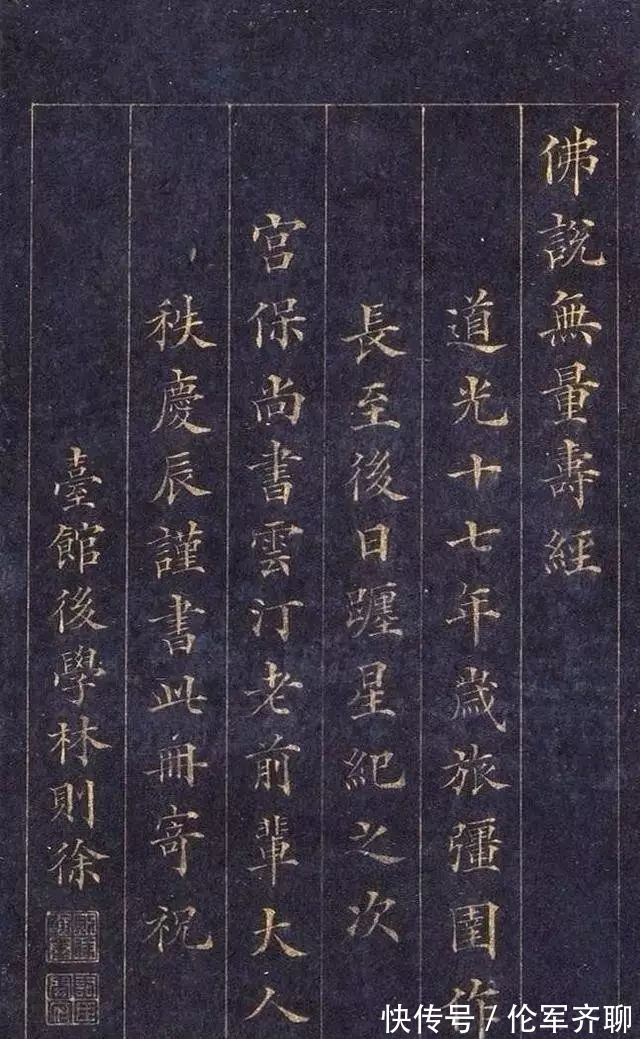 佛說無量壽經
道光十七年歲旅彊圉作
長至後日躔星紀之次
宮保尚書雲汀老前輩大人
秩慶辰謹書此冊寄祝
臺館後學林則徐
快传号 / 伦军齐聊